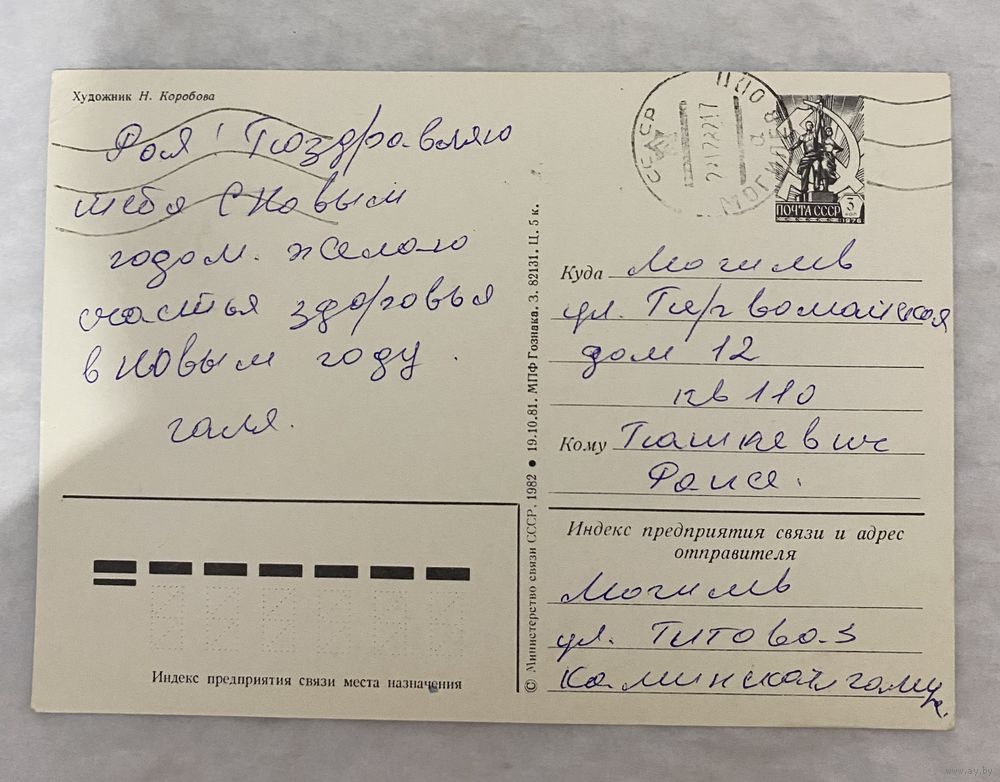 Художник Н. Коробова
Рая! Поздравляю
тебя с Новым
годом. желаю
счастья здоровья
в новым году.
галя.
Индекс предприятия связи места назначения
© Министерство связи СССР, 1982 • 19.10.81. МПФ Гознака. З. 82131. Ц. 5 к.
СССР
22122217
МОГИЛЕВ
ПОЧТА СССР
3 коп
1976
Куда Могилев
ул. Первомайская
дом 12
кв 110
Кому Пашкевич
Раисе.
Индекс предприятия связи и адрес
отправителя
Могилев
ул. Титова-3
Каминская
www.ay.by